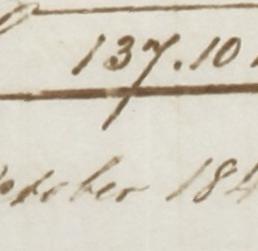 137.10
October 184